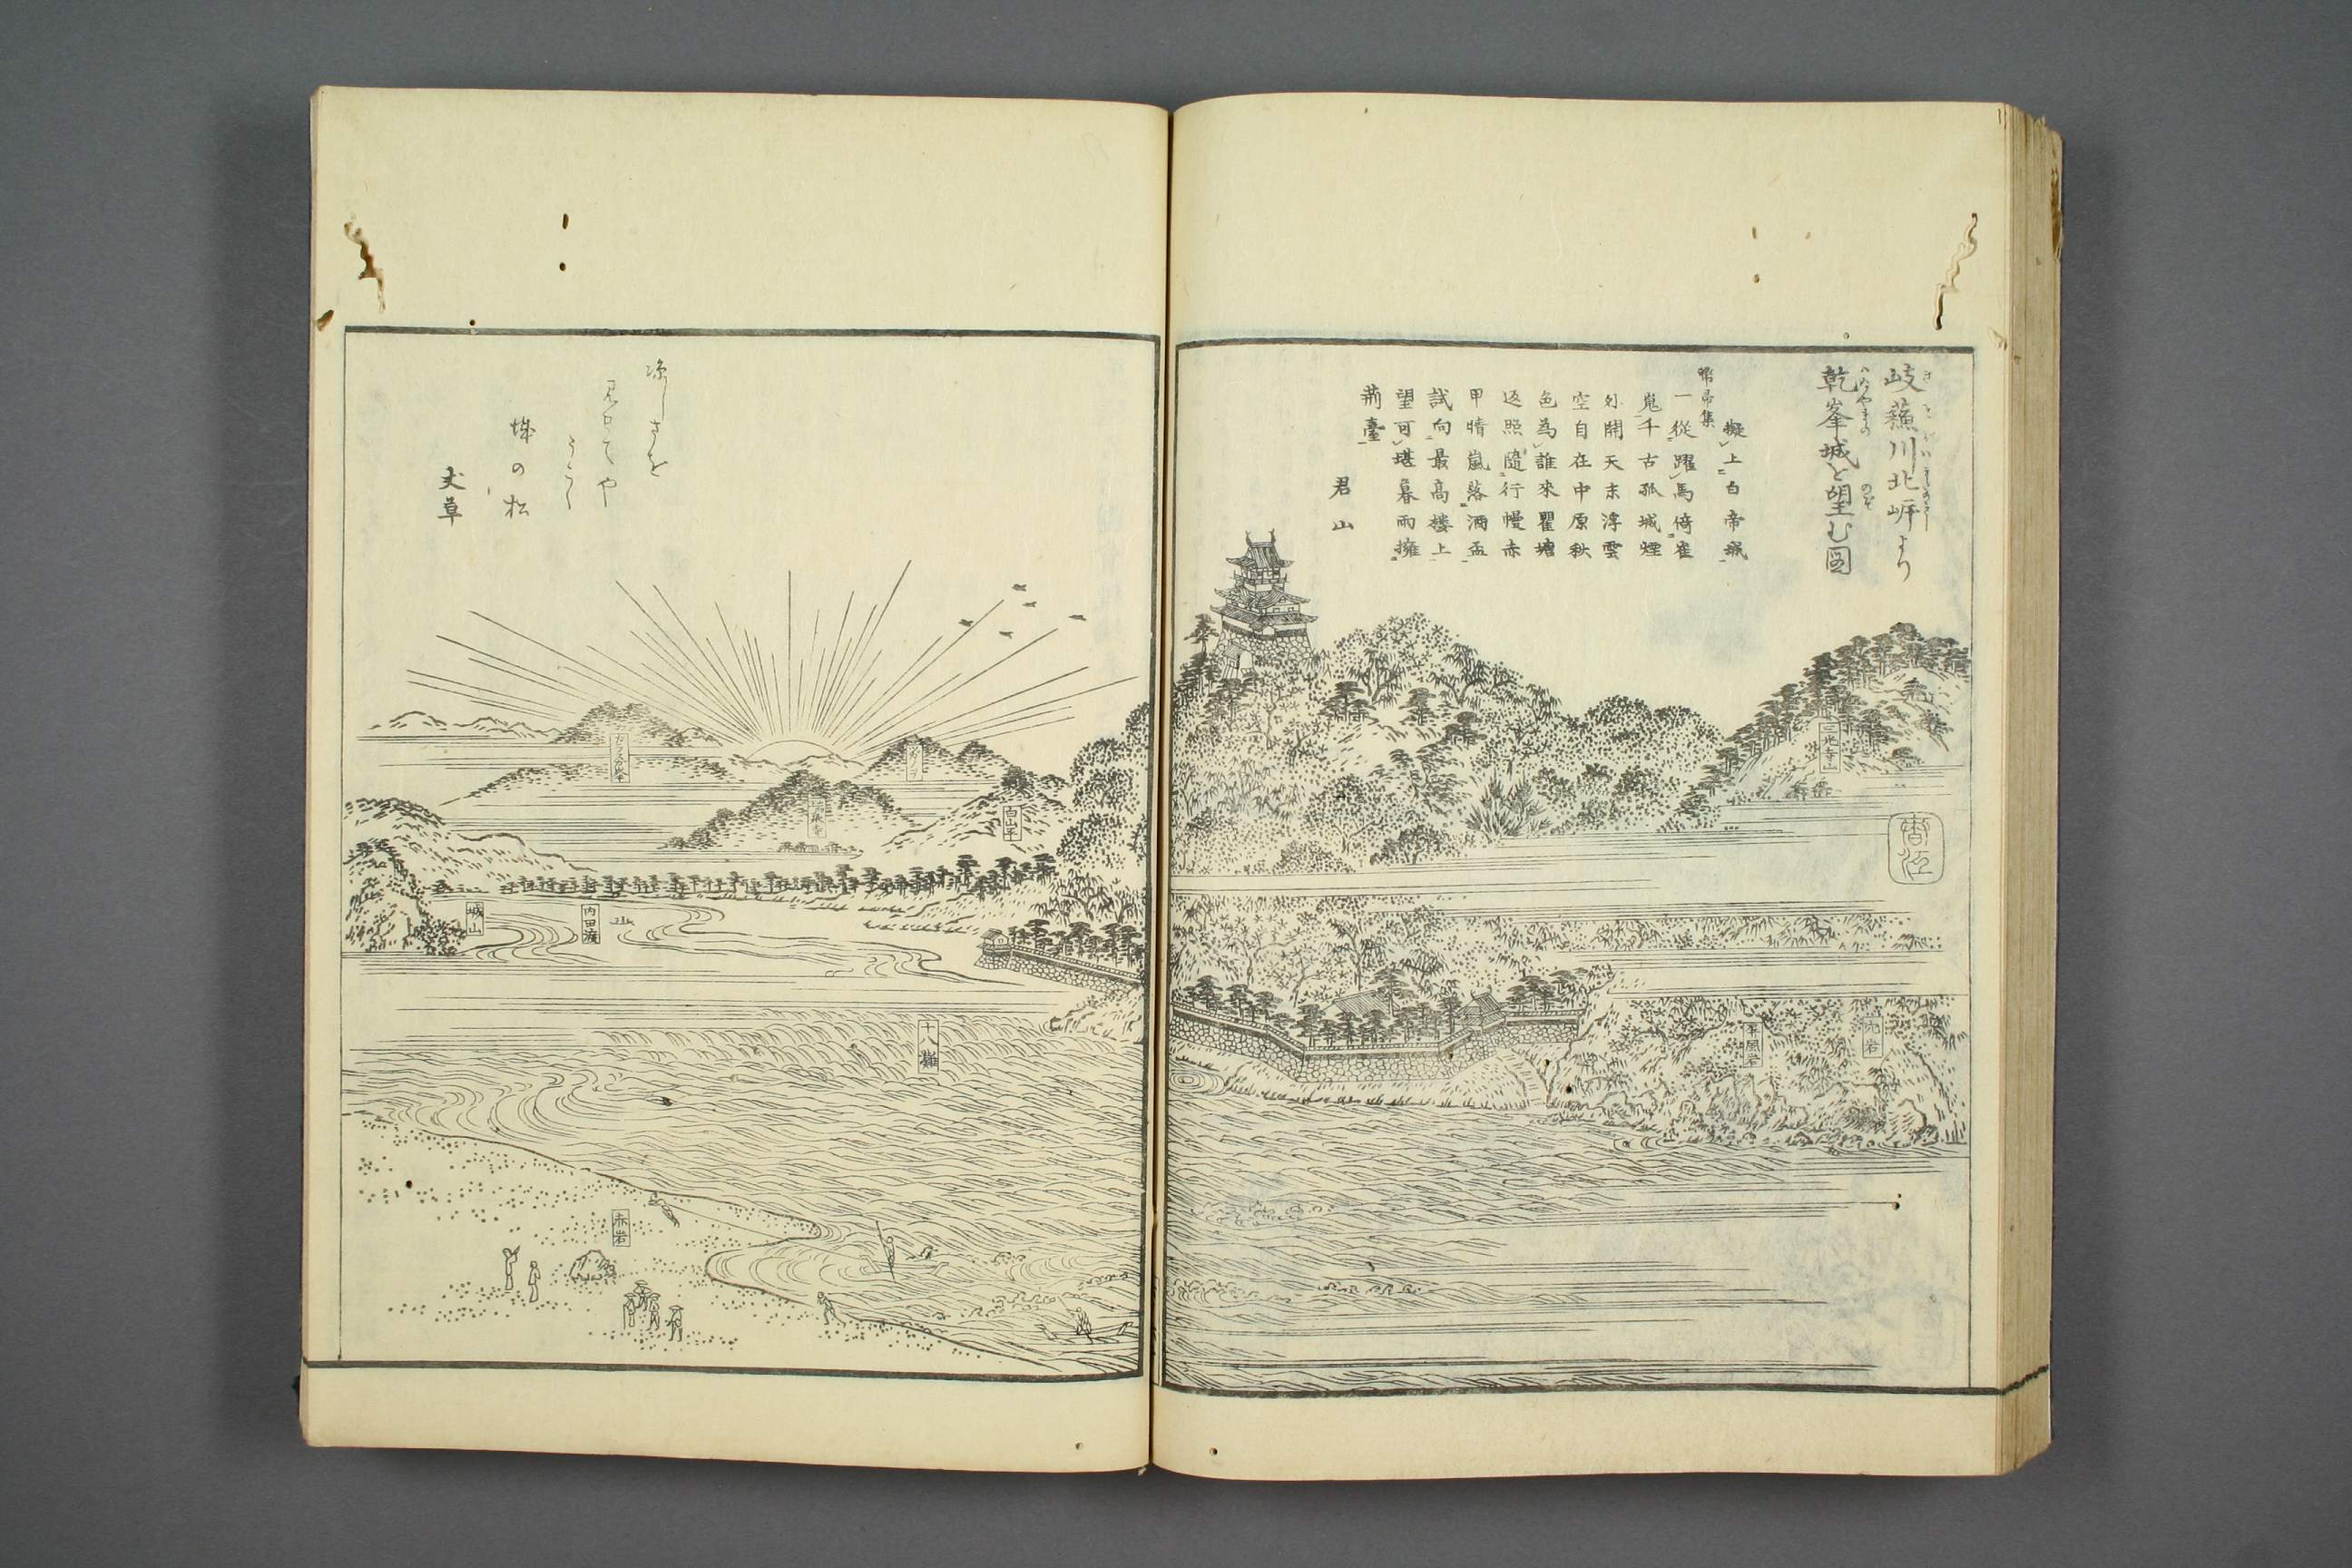 岐蘓川北岸より
乾峯城を望む図
幣帚集
擬上白帝城
一從躍馬倚崔
嵬千古孤城煙
外開天末浮雲
空自在中原秋
色為誰來瞿塘
返照隨行幔赤
甲晴嵐落酒盃
試向最高樓上
望可堪暮雨擁
荊臺
君山
三光寺山
屏風岩
涼しさを
見せてや
うごく
城の松
丈草
白山平
城山
内田渡
十八灘
赤岩